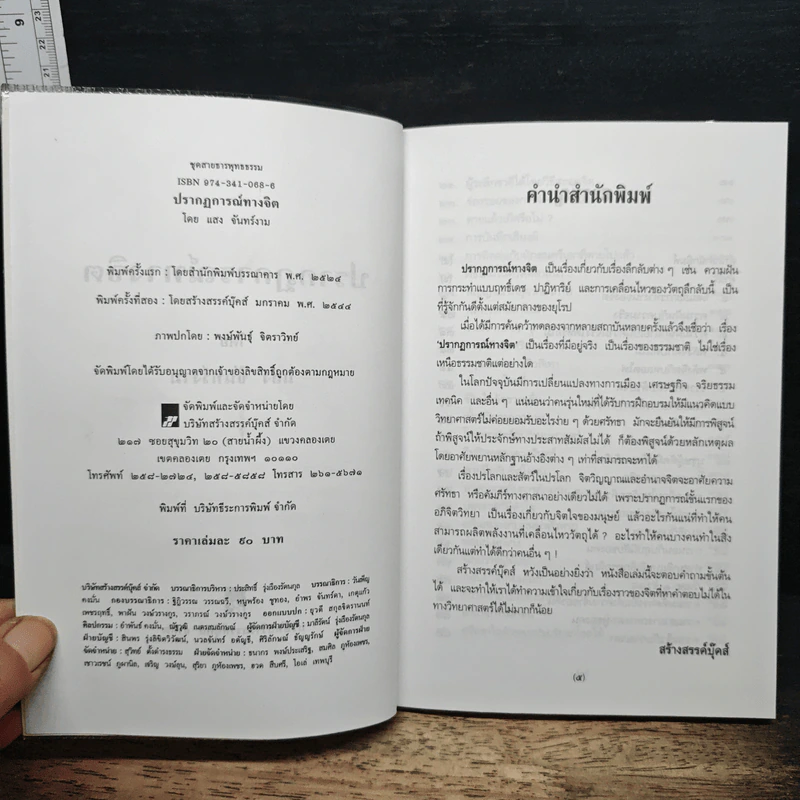 9
23
22
21
ชุดสายธารพุทธธรรม
ISBN 974-341-068-6
ปรากฏการณ์ทางจิต
โดย แสง จันทร์งาม
พิมพ์ครั้งแรก : โดยสำนักพิมพ์บรรณาคาร พ.ศ. ๒๕๒๔
พิมพ์ครั้งที่สอง : โดยสร้างสรรค์บุ๊คส์ มกราคม พ.ศ. ๒๕๔๔
ภาพปกโดย : พงษ์พันธุ์ จิตราวิทย์
จัดพิมพ์โดยได้รับอนุญาตจากเจ้าของลิขสิทธิ์ถูกต้องตามกฎหมาย
จัดพิมพ์และจัดจำหน่ายโดย
บริษัทสร้างสรรค์บุ๊คส์ จำกัด
๒๑๗ ซอยสุขุมวิท ๒๐ (สายน้ำผึ้ง) แขวงคลองเตย
เขตคลองเตย กรุงเทพฯ ๑๐๑๑๐
โทรศัพท์ ๒๕๘-๒๗๒๔, ๒๕๘-๕๘๕๘ โทรสาร ๒๖๑-๕๖๗๑
พิมพ์ที่ บริษัทธีระการพิมพ์ จำกัด
ราคาเล่มละ ๙๐ บาท
บริษัทสร้างสรรค์บุ๊คส์ จำกัด บรรณาธิการบริหาร : ประสิทธิ์ รุ่งเรืองรัตนกุล บรรณาธิการ : วันเพ็ญ
คงมั่น กองบรรณาธิการ : ฐิฏิวรรณ วรรณขวี, หนูพร้อง ชูทอง, อำพร จันทร์ดา, เกตุแก้ว
เพชรฤทธิ์, พาฝัน วงษ์วรางกูร, วราภรณ์ วงษ์วรางกูร ออกแบบปก : ยุวดี สกุลจิตรานนท์
ศิลปะกรรม : อำพันธ์ คงมั่น, ณัฐวุฒิ เนตรสมลักษณ์ ผู้จัดการฝ่ายบัญชี : มาลีรัตน์ รุ่งเรืองรัตนกุล
ฝ่ายบัญชี : สินพร รุ่งลิขิตวิวัฒน์, นวลจันทร์ อตัญธี, ศิริลักษณ์ ธัญญรักษ์ ผู้จัดการฝ่าย
จัดจำหน่าย : สุวิทย์ ตั้งดำรงธรรม ฝ่ายจัดจำหน่าย : ธนากร พงษ์ประเสริฐ, สมศิล ภูท้องเพชร,
เชาวเรชน์ ภูผานิล, เสริญ วงษ์อุ่น, สุริยา ภูท้องเพชร, ธวด สืบศรี, ไอเล่ เทพบุรี
คำนำสำนักพิมพ์
ปรากฏการณ์ทางจิต เป็นเรื่องเกี่ยวกับเรื่องลึกลับต่าง ๆ เช่น ความฝัน
การกระทำแบบฤทธิ์เดช ปาฏิหาริย์ และการเคลื่อนไหวของวัตถุลึกลับนี้ เป็น
ที่รู้จักกันดีตั้งแต่สมัยกลางของยุโรป
เมื่อได้มีการค้นคว้าทดลองจากหลายสถาบันหลายครั้งแล้วจึงเชื่อว่า เรื่อง
‘ปรากฏการณ์ทางจิต’ เป็นเรื่องที่มีอยู่จริง เป็นเรื่องของธรรมชาติ ไม่ใช่เรื่อง
เหนือธรรมชาติแต่อย่างใด
ในโลกปัจจุบันมีการเปลี่ยนแปลงทางการเมือง เศรษฐกิจ จริยธรรม
เทคนิค และอื่น ๆ แน่นอนว่าคนรุ่นใหม่ที่ได้รับการฝึกอบรมให้มีแนวคิดแบบ
วิทยาศาสตร์ไม่ค่อยยอมรับอะไรง่าย ๆ ด้วยศรัทธา มักจะยืนยันให้มีการพิสูจน์
ถ้าพิสูจน์ให้ประจักษ์ทางประสาทสัมผัสไม่ได้ ก็ต้องพิสูจน์ด้วยหลักเหตุผล
โดยอาศัยพยานหลักฐานอ้างอิงต่าง ๆ เท่าที่สามารถจะหาได้
เรื่องปรโลกและสัตว์ในปรโลก จิตวิญญาณและอำนาจจิตจะอาศัยความ
ศรัทธา หรือคัมภีร์ทางศาสนาอย่างเดียวไม่ได้ เพราะปรากฏการณ์ชั้นแรกของ
อภิจิตวิทยา เป็นเรื่องเกี่ยวกับจิตใจของมนุษย์ แล้วอะไรกันแน่ที่ทำให้คน
สามารถผลิตพลังงานที่เคลื่อนไหววัตถุได้ ? อะไรทำให้คนบางคนทำในสิ่ง
เดียวกันแต่ทำได้ดีกว่าคนอื่น ๆ !
สร้างสรรค์บุ๊คส์ หวังเป็นอย่างยิ่งว่า หนังสือเล่มนี้จะตอบคำถามชั้นต้น
ได้ และจะทำให้เราได้ทำความเข้าใจเกี่ยวกับเรื่องราวของจิตที่หาคำตอบไม่ได้ใน
ทางวิทยาศาสตร์ได้ไม่มากก็น้อย
สร้างสรรค์บุ๊คส์
(๕)